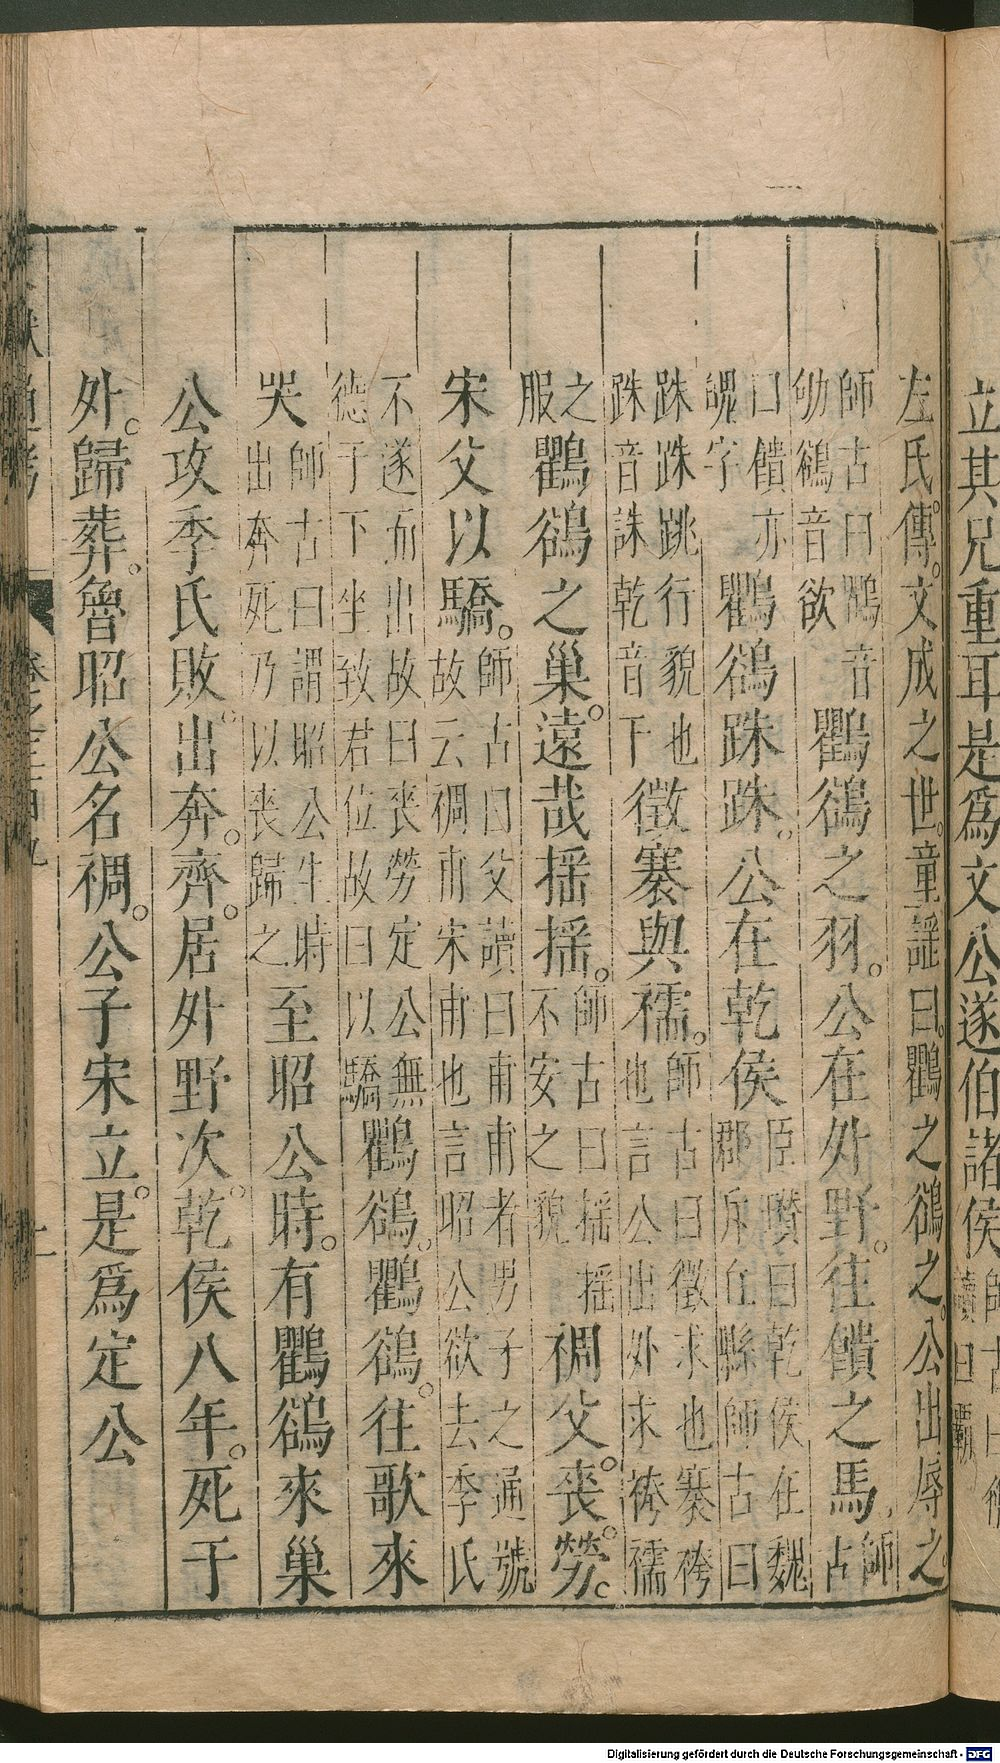 立其兄重耳是爲文公遂伯諸侯
師古曰伯
讀曰霸
左氏傳。文成之世。童謡曰。鸜之鵒之。公出辱之。
師古曰鸜音
劬鵒音欲
鸜鵒之羽。公在外野。往饋之馬
師
古
曰饋亦
餽字
鸜鵒跦跦。公在乾侯
臣瓚曰乾侯在魏
郡斥丘縣師古曰
跦跦跳行貌也
跦音誅乾音干
徵褰與襦。
師古曰徵求也褰袴
也言公出外求袴襦
之
服
鸜鵒之巢。遠哉摇摇。
師古曰摇摇
不安之貌
裯父。喪勞。
宋父以驕。
師古曰父讀曰甫甫者男子之通號
故云裯甫宋甫也言昭公欲去季氏
不遂而出故曰喪勞定公無
德于下坐致君位故曰以驕
鸜鵒。鸜鵒。往歌來
哭
師古曰謂昭公生時
出奔死乃以喪歸之
至昭公時。有鸜鵒來巢
公攻季氏敗。出奔。齊。居外野次。乾侯八年。死于
外。歸葬。魯昭公名裯。公子宋立。是爲定公
Digitalisierung gefördert durch die Deutsche Forschungsgemeinschaft - DFG